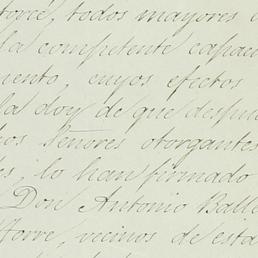 torce, todos mayores
la competente capac
mento cuyos efectos
la doy de que despu
hos señores otorgantes
lo han firmado
Don Antonio Balle
Ferre, vecinos de esta